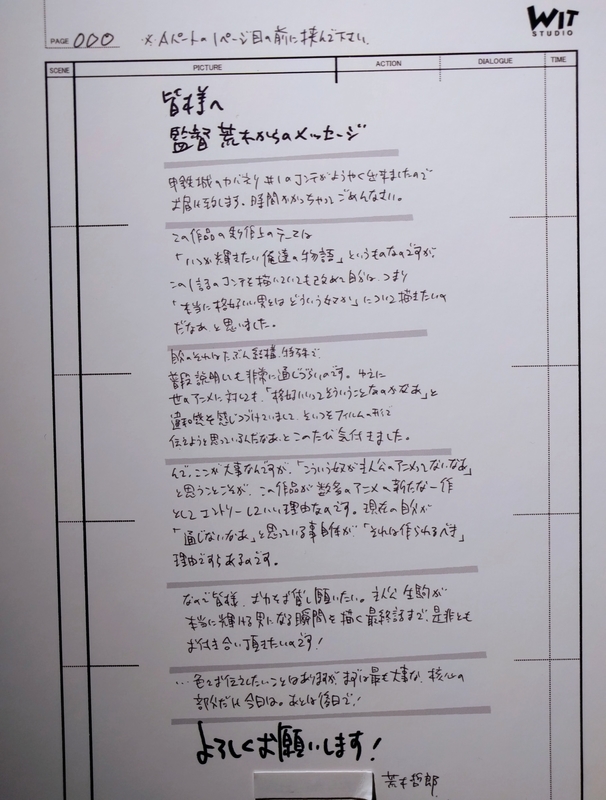 WIT
STUDIO
PAGE 000 ※Aパートの1ページ目の前に挟んで下さい。
SCENE PICTURE ACTION DIALOGUE TIME
皆様へ
監督 荒木からのメッセージ
甲鉄城のカバネリ #1のコンテがようやく出来ましたので
お届け致します。時間かかっちゃってごめんなさい。
この作品の制作上のテーマは
「いつか輝きたい俺達の物語」というものなのですが、
この1話のコンテを描いていても改めて自分は、つまり
「本当に格好いい男とはどういう奴か」について描きたいの
だなあと思いました。
自分のそれはたぶん結構、特殊で
普段説明しても非常に通じづらいのです。ゆえに
世のアニメに対しても、「格好いいってそういうことなのかなあ」と
違和感を感じつづけていまして、そいつをフィルムの形で
伝えようと思っているんだなあ、とこのたび気付きました。
んで、ここが大事なんですが、「こういう奴が主人公のアニメってないなあ」
と思うことこそが、この作品が数多のアニメの新たな一作
としてエントリーしていい理由なのです。現在の自分が
「通じないなあ」と思っている事自体が、「それは作られるべき」
理由ですらあるのです。
なので皆様、お力をお貸し願いたい。主人公 生駒が
本当に輝ける男になる瞬間を描く最終話まで、是非とも
お付き合い頂きたいのです!
…色々お伝えしたいことはありますが、まずは最も大事な、核心の
部分だけ今日は。あとは後日で!
よろしくお願いします!
荒木哲郎